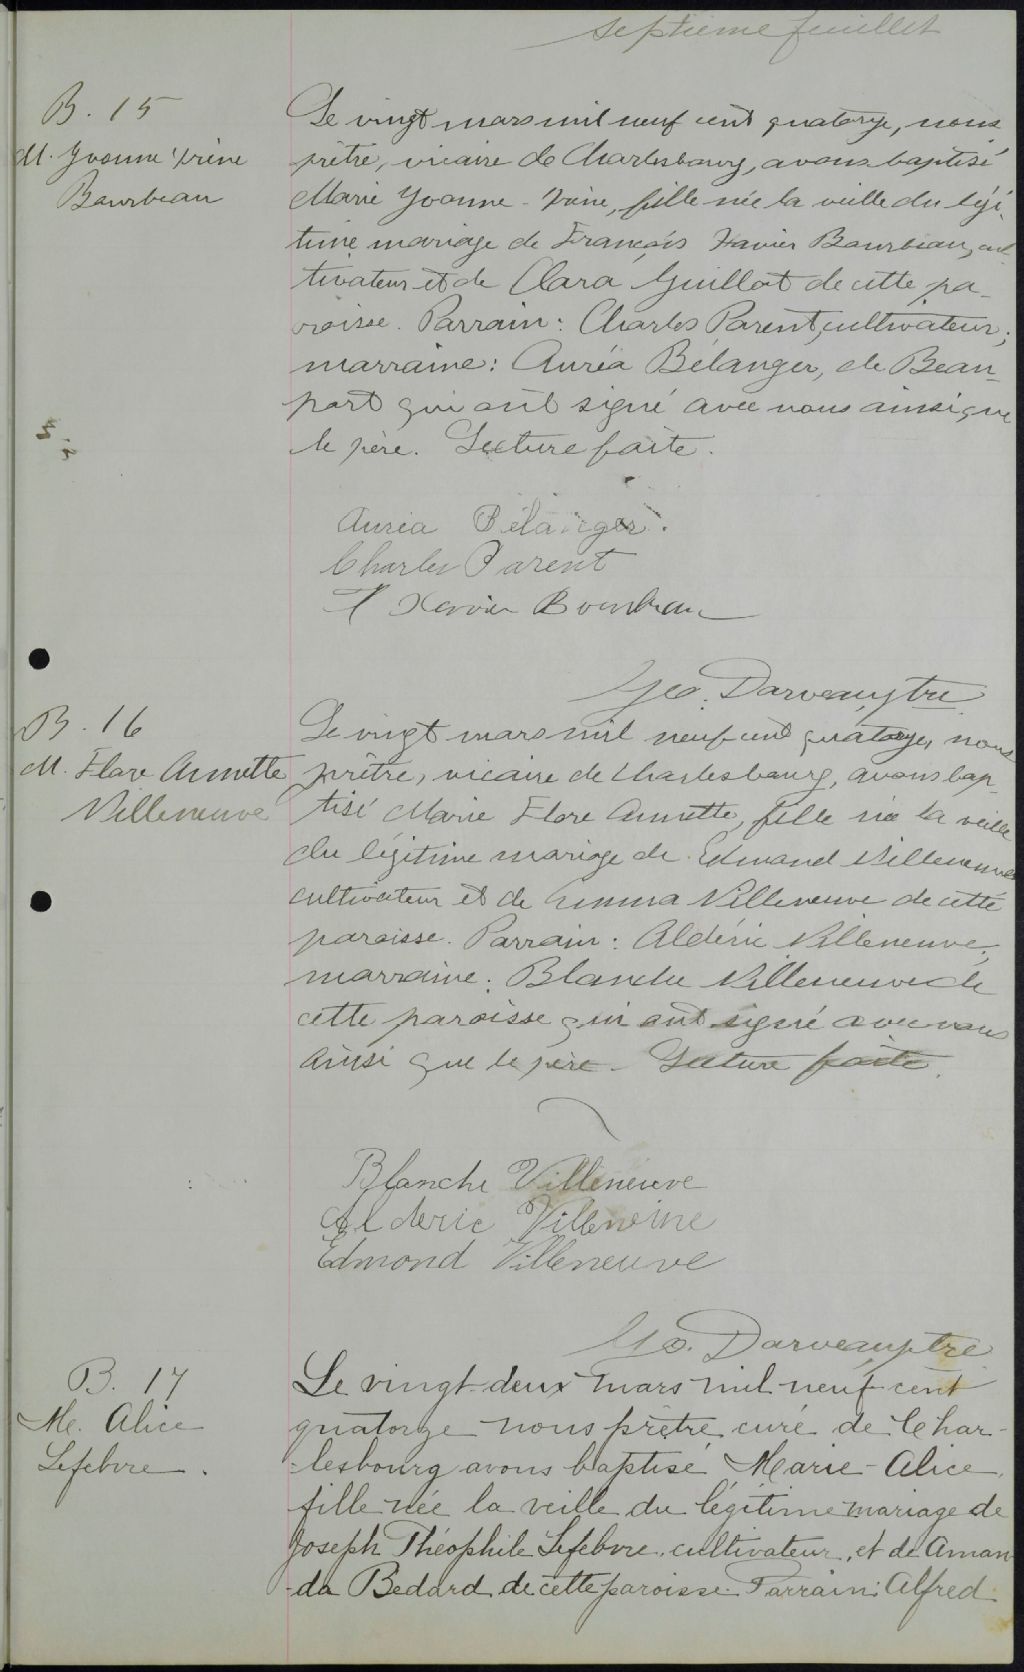 septième feuillet
B. 15
M. Yvonne Irène
Bourbeau
Le vingt mars mil neuf cent quatorze, nous
prêtre, vicaire de Charlesbourg, avons baptisé
Marie Yvonne-Irène, fille née la veille du légi-
time mariage de François Xavier Bourbeau, cul-
tivateur et de Clara Guillot de cette pa-
roisse. Parrain: Charles Parent, cultivateur;
marraine: Auréa Bélanger, de Beau-
port qui ont signé avec nous ainsi que
le père. Lecture faite.
Auréa Bélanger.
Charles Parent
F Xavier Bourbeau
Geo. Darveau, ptre
B. 16
M. Flore Annette
Villeneuve
Le vingt mars mil neuf cent quatorze, nous
prêtre, vicaire de Charlesbourg, avons bap-
tisé Marie Flore Annette, fille née la veille
du légitime mariage de Edmond Villeneuve
cultivateur et de Emma Villeneuve de cette
paroisse. Parrain: Aldéric Villeneuve;
marraine: Blanche Villeneuve de
cette paroisse qui ont signé avec nous
ainsi que le père. Lecture faite.
Blanche Villeneuve
Alderic Villeneuve
Edmond Villeneuve
Geo. Darveau, ptre
B. 17
Me. Alice
Lefebvre.
Le vingt-deux mars mil neuf cent
quatorze nous prêtre curé de Char-
lesbourg avons baptisé Marie-Alice,
fille née la veille du légitime mariage de
Joseph Théophile Lefebvre, cultivateur, et de Aman-
-da Bedard de cette paroisse. Parrain: Alfred